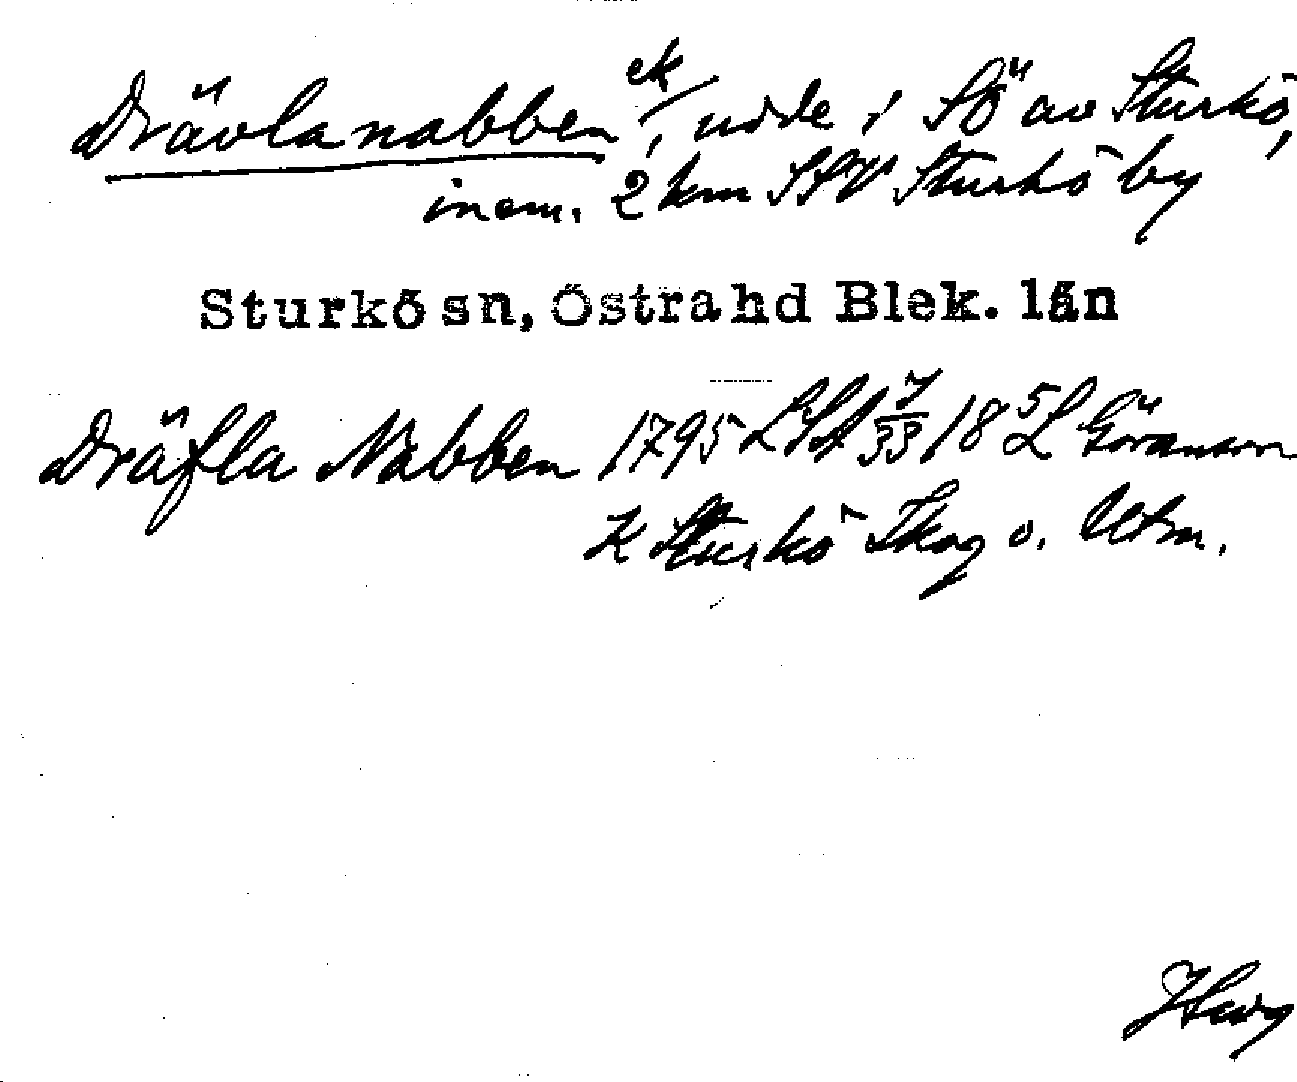 Drävlanabben ek/, udde i SÖ av Sturkö,
inom. 2 km SSV Sturkö by
Sturkö sn, Östra hd Blek. län
Dräfla Nabben 1795 LSA 7/33 18 5 L Göransson
K Sturkö Skog o. Utm.